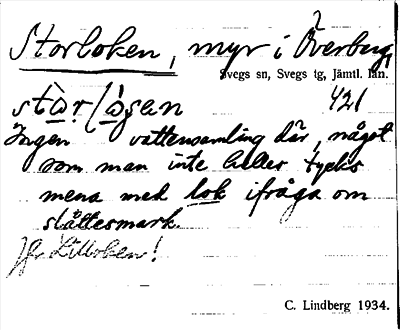 Storloken, myr i Överberg,
Svegs sn, Svegs tg, Jämtl. län.
421
Ingen vattensamling där, något
som man inte heller tycks
mena med lok ifråga om
slåttesmark.
Jfr Lilloken!
C. Lindberg 1934.